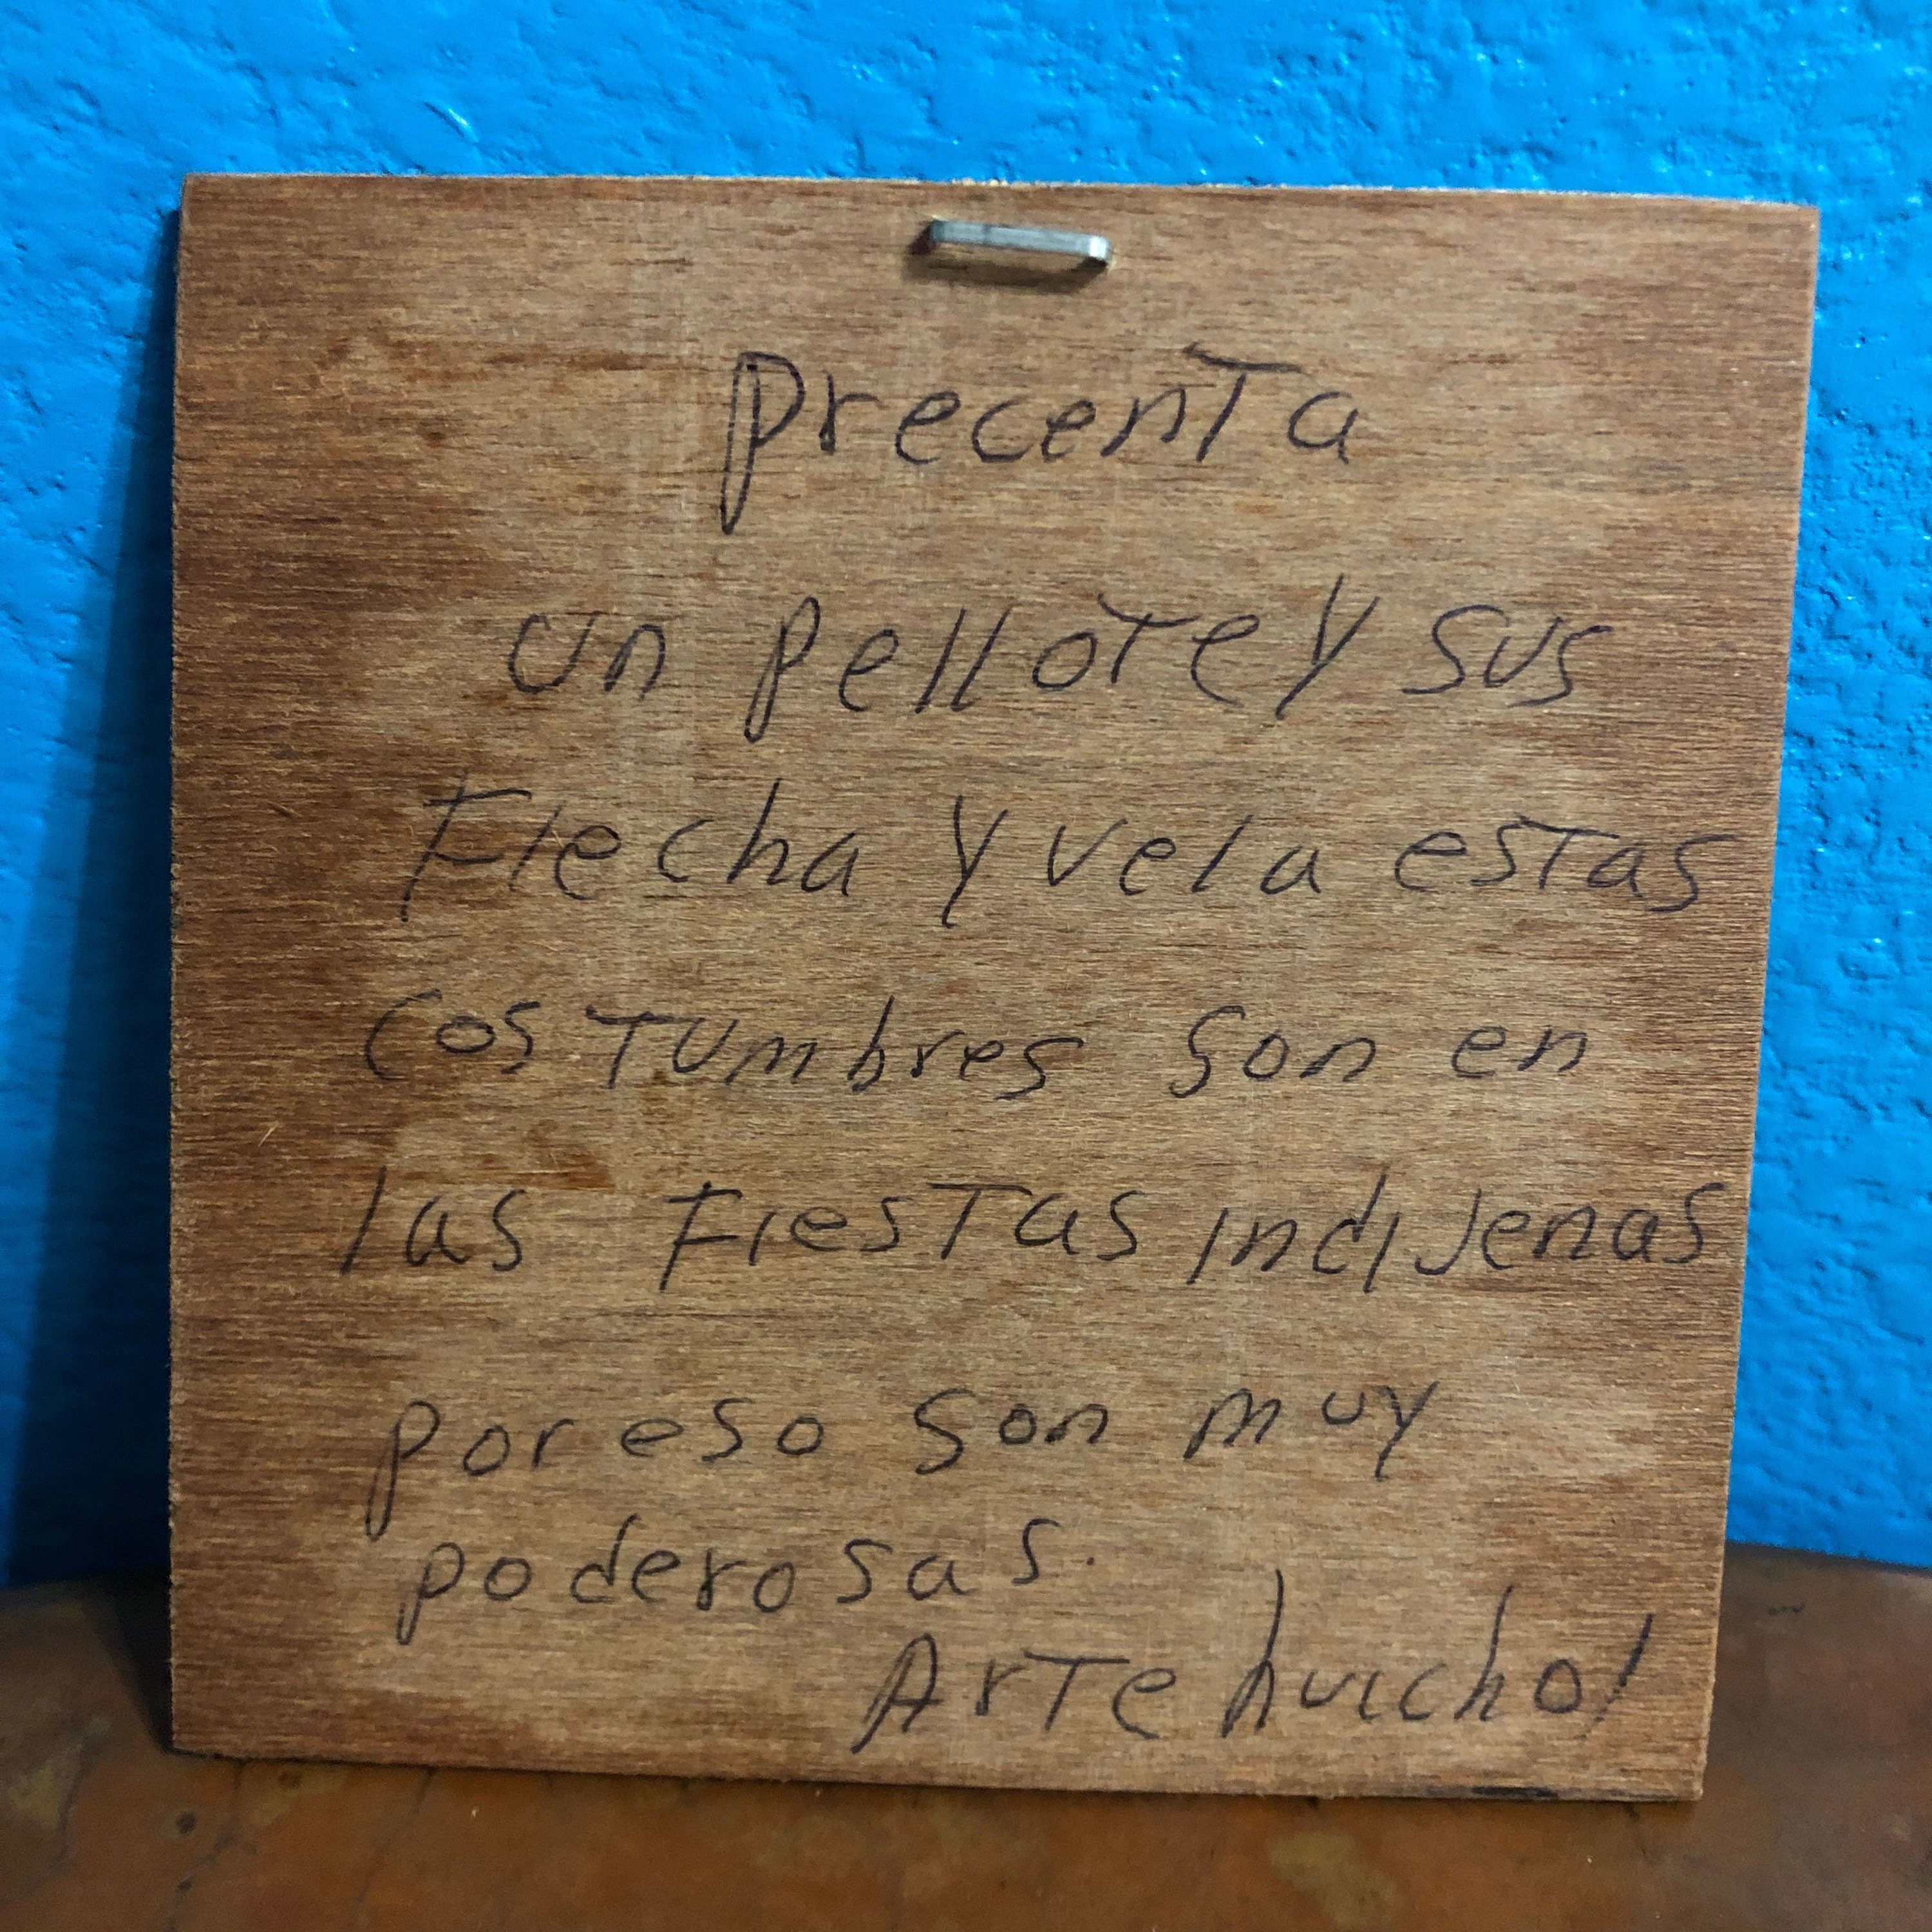 precenta
un pellote y sus
Flecha y vela estas
costumbres son en
las Fiestas indijenas
por eso son muy
poderosas.
Arte huichol